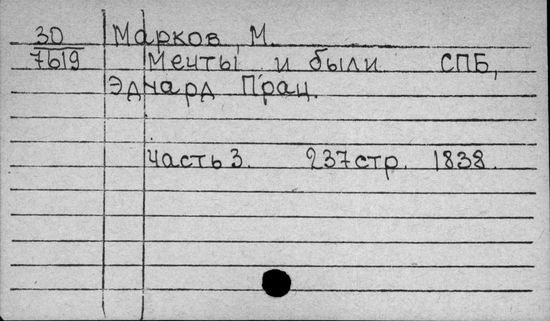 30 Марков, М.
7619 Мечты и были СПБ,
Эдуард Прац.
часть 3. 237 стр. 1838.